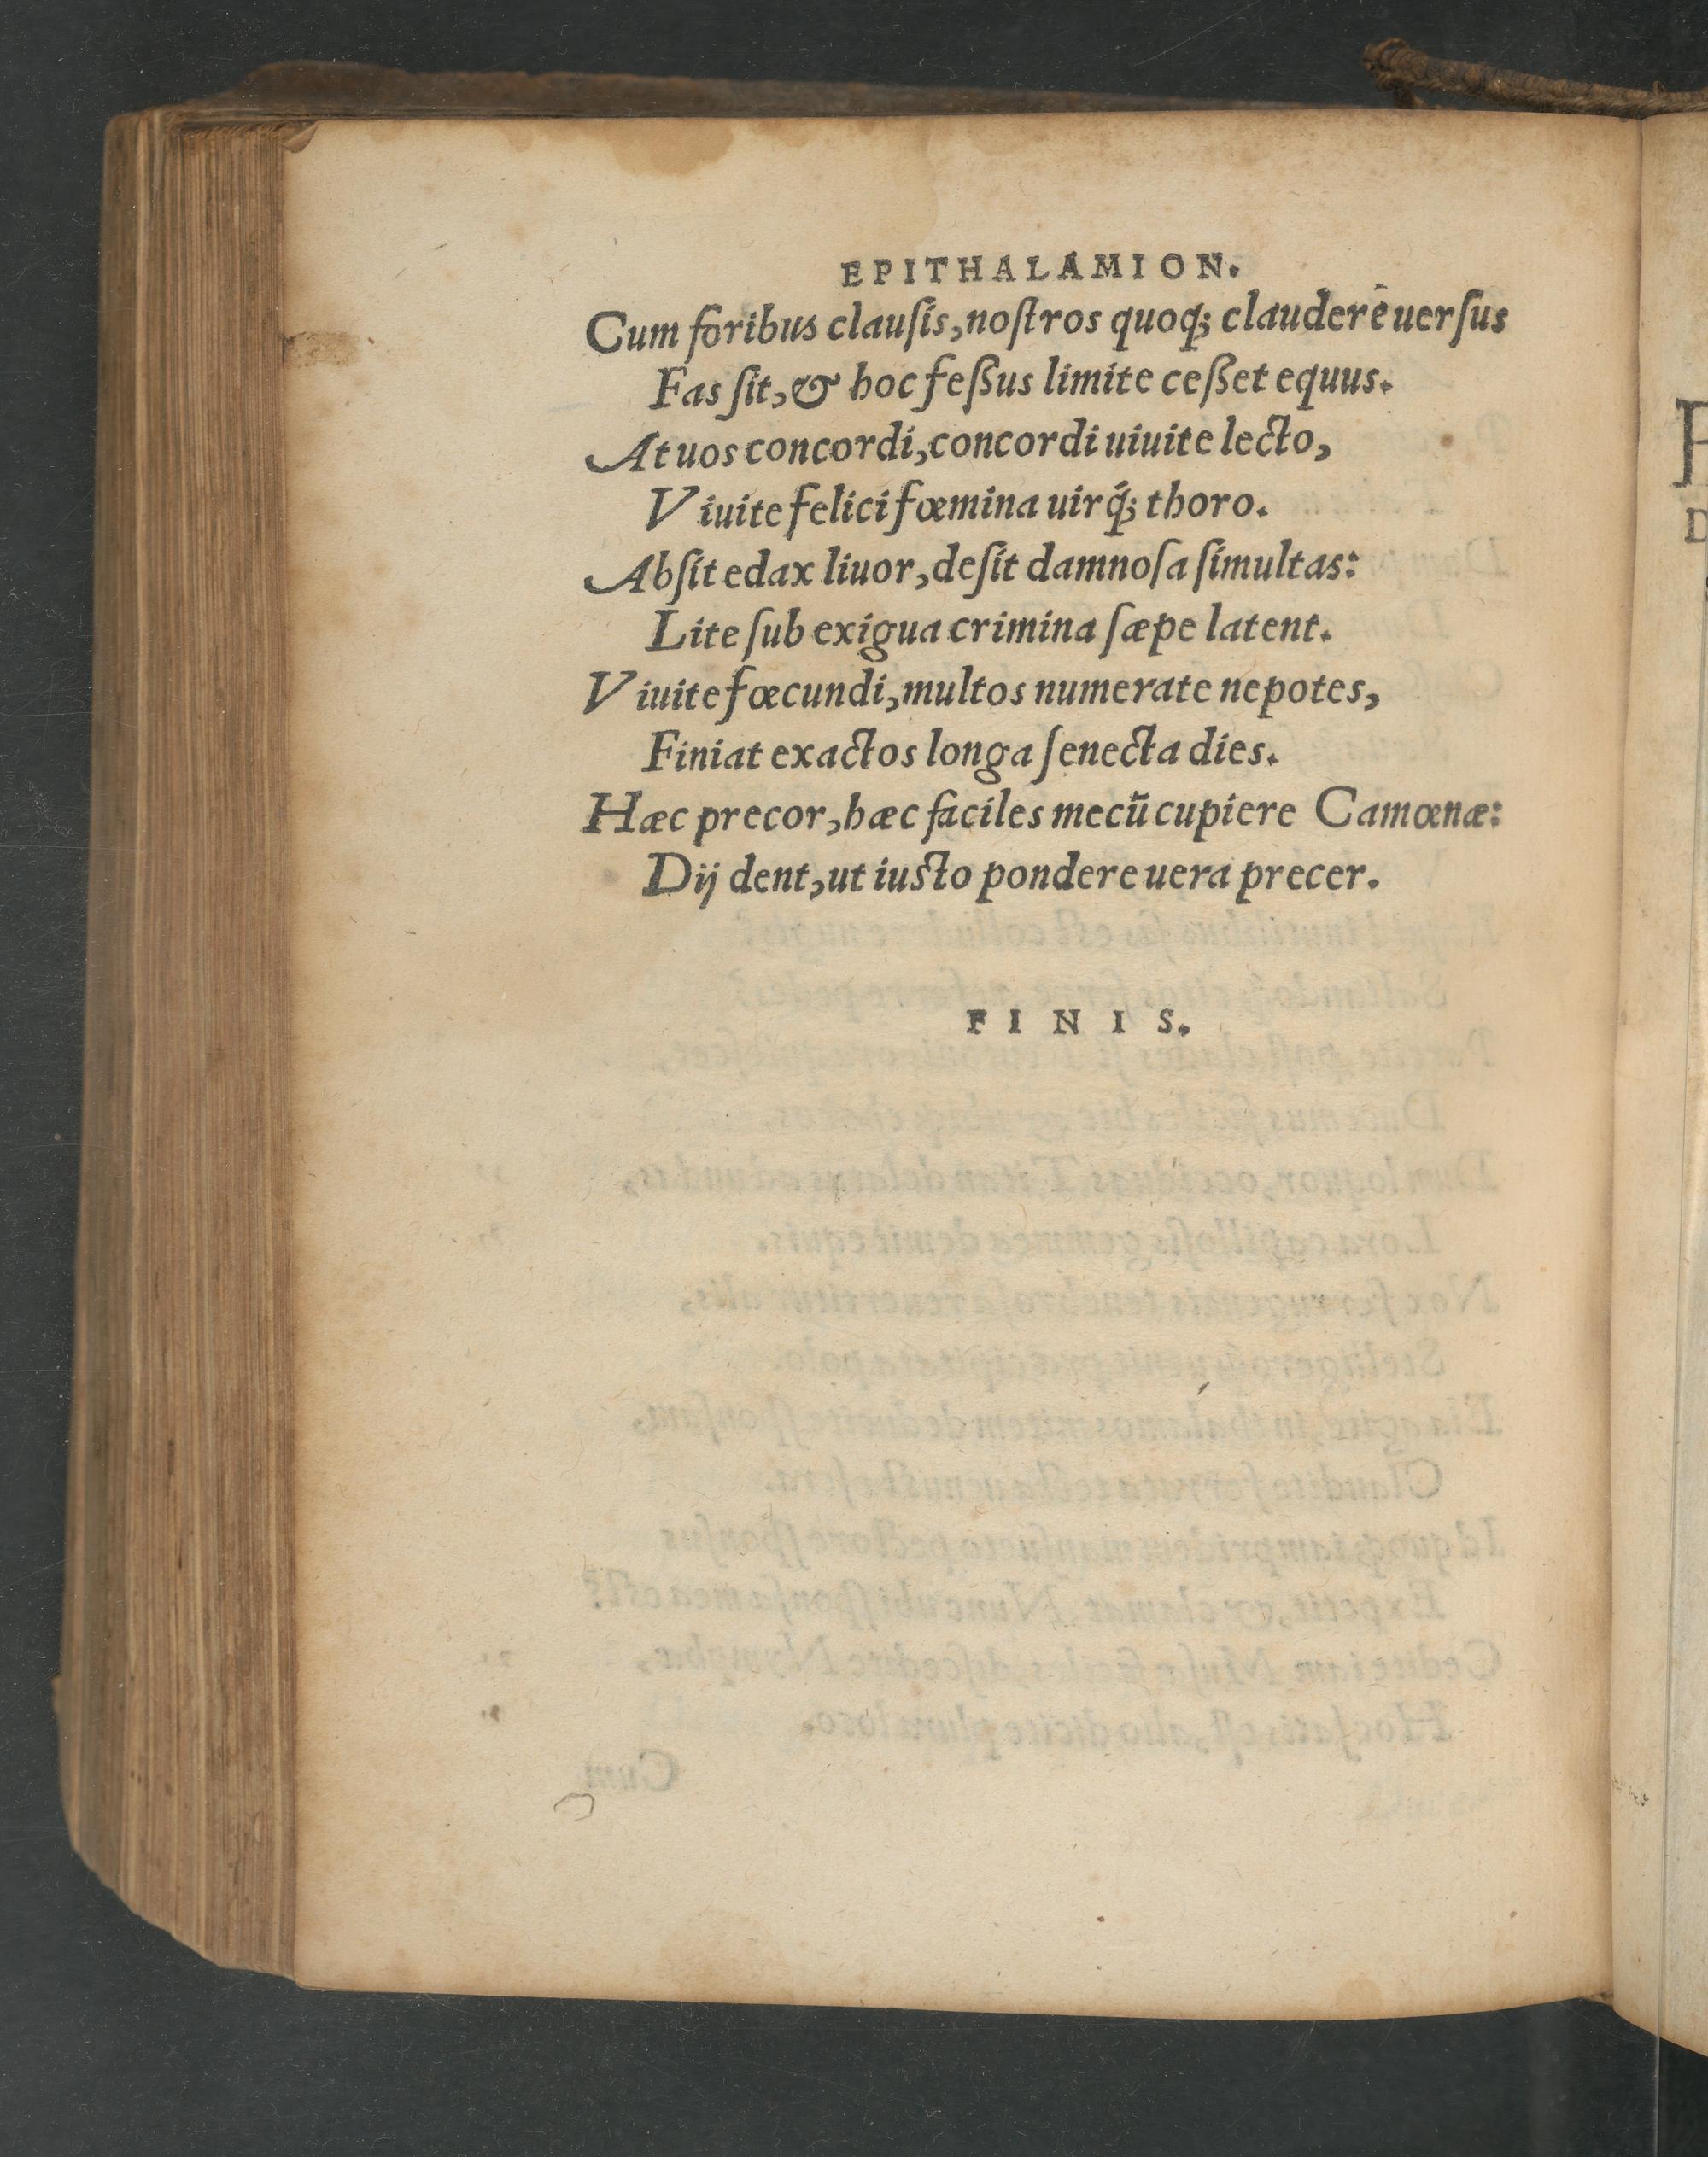 EPITHALAMION.
Cum foribus clauſis, noſtros quoq; clauderê uerſus
Fas ſit, & hoc feßus limite ceßet equus.
At uos concordi, concordi uiuite lecto,
Viuite felici fœmina uirq́; thoro.
Abſit edax liuor, deſit damnoſa ſimultas:
Lite ſub exigua crimina ſæpe latent.
Viuite fœcundi, multos numerate nepotes,
Finiat exactos longa ſenecta dies.
Hæc precor, hæc faciles mecũ cupiere Camœnæ:
Dij dent, ut iuſto pondere uera precer.
FINIS.